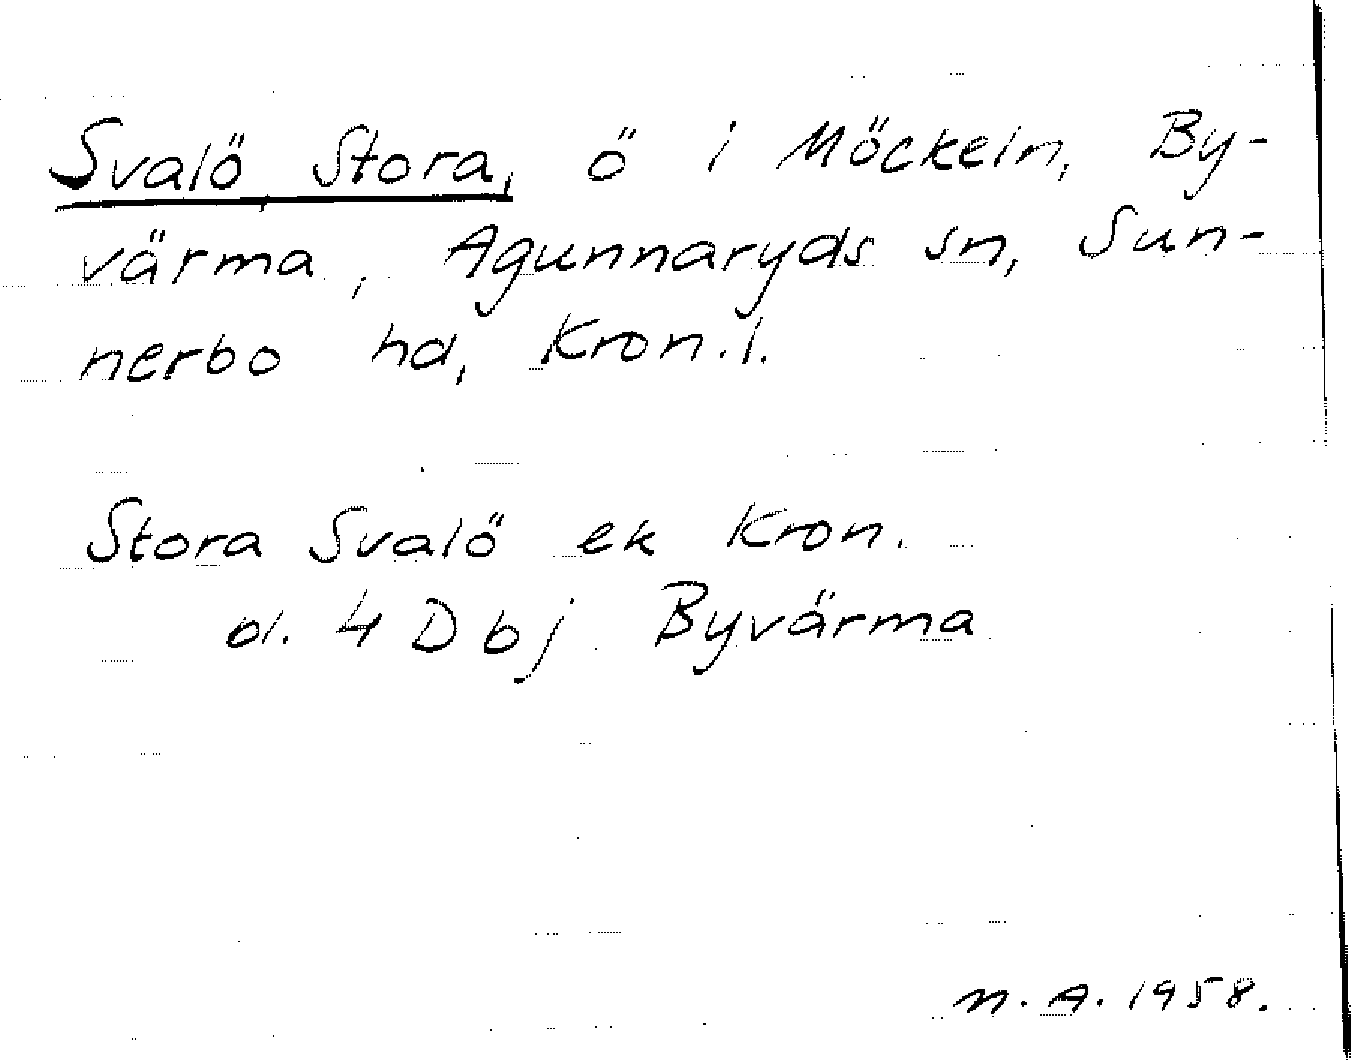 Svalö, Stora, ö i Möckeln, By-
värma, Agunnaryds sn, Sun-
nerbo hd, Kron. l.
Stora Svalö ek Kron.
bl. 4 D bj Byvärma
N. A. 1958.